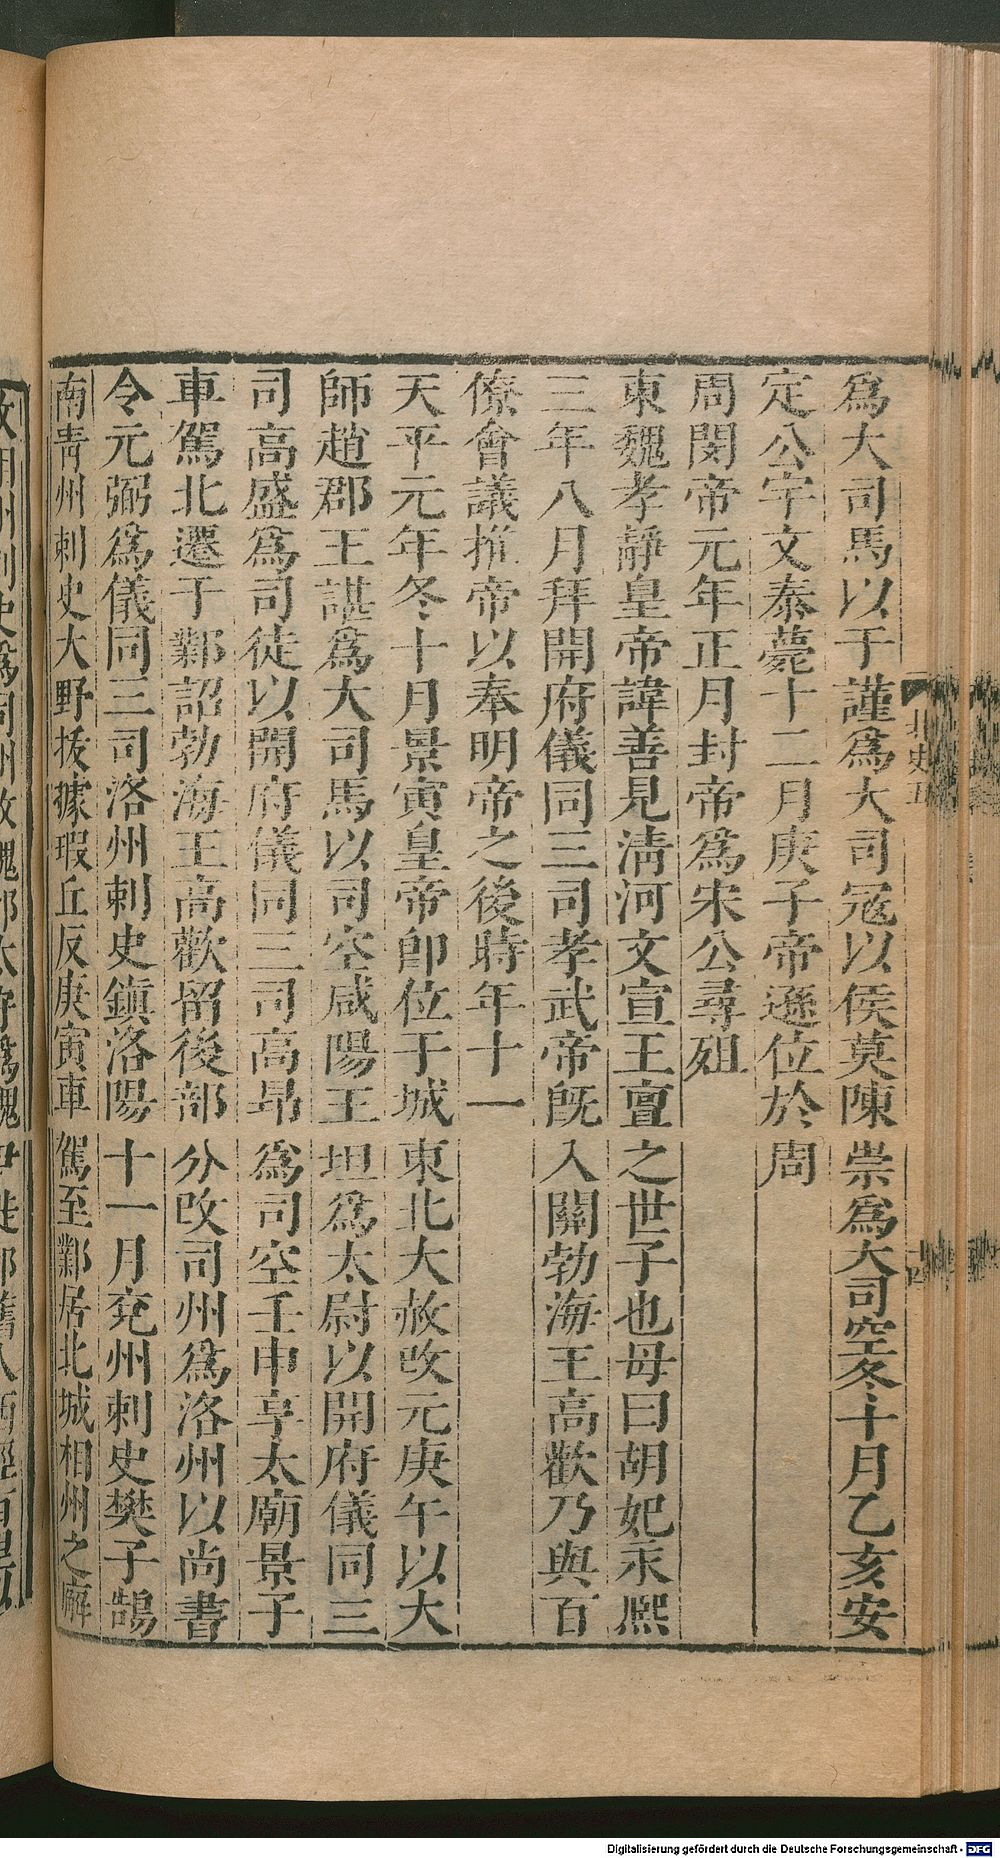 爲大司馬以于謹爲大司冦以侯莫陳崇爲大司空冬十月乙亥安
定公宇文泰薨十二月庚子帝遜位於周
周閔帝元年正月封帝爲宋公尋殂
東魏孝靜皇帝諱善見清河文宣王亶之世子也母曰胡妃永熙
三年八月拜開府儀同三司孝武帝旣入關勃海王高歡乃與百
僚會議推帝以奉明帝之後時年十一
天平元年冬十月景寅皇帝卽位于城東北大赦改元庚午以太
師趙郡王諶爲大司馬以司空咸陽王坦爲太尉以開府儀同三
司高盛爲司徒以開府儀同三司高昂爲司空壬申享太廟景子
車駕北遷于鄴詔勃海王高歡留後部分改司州爲洛州以尚書
令元弼爲儀同三司洛州刺史鎮洛陽十一月兗州刺史樊子鵠
南青州刺史大野拔據瑕丘反庚寅車駕至鄴居北城相州之廨
北史五
Digitalisierung gefördert durch die Deutsche Forschungsgemeinschaft - DFG